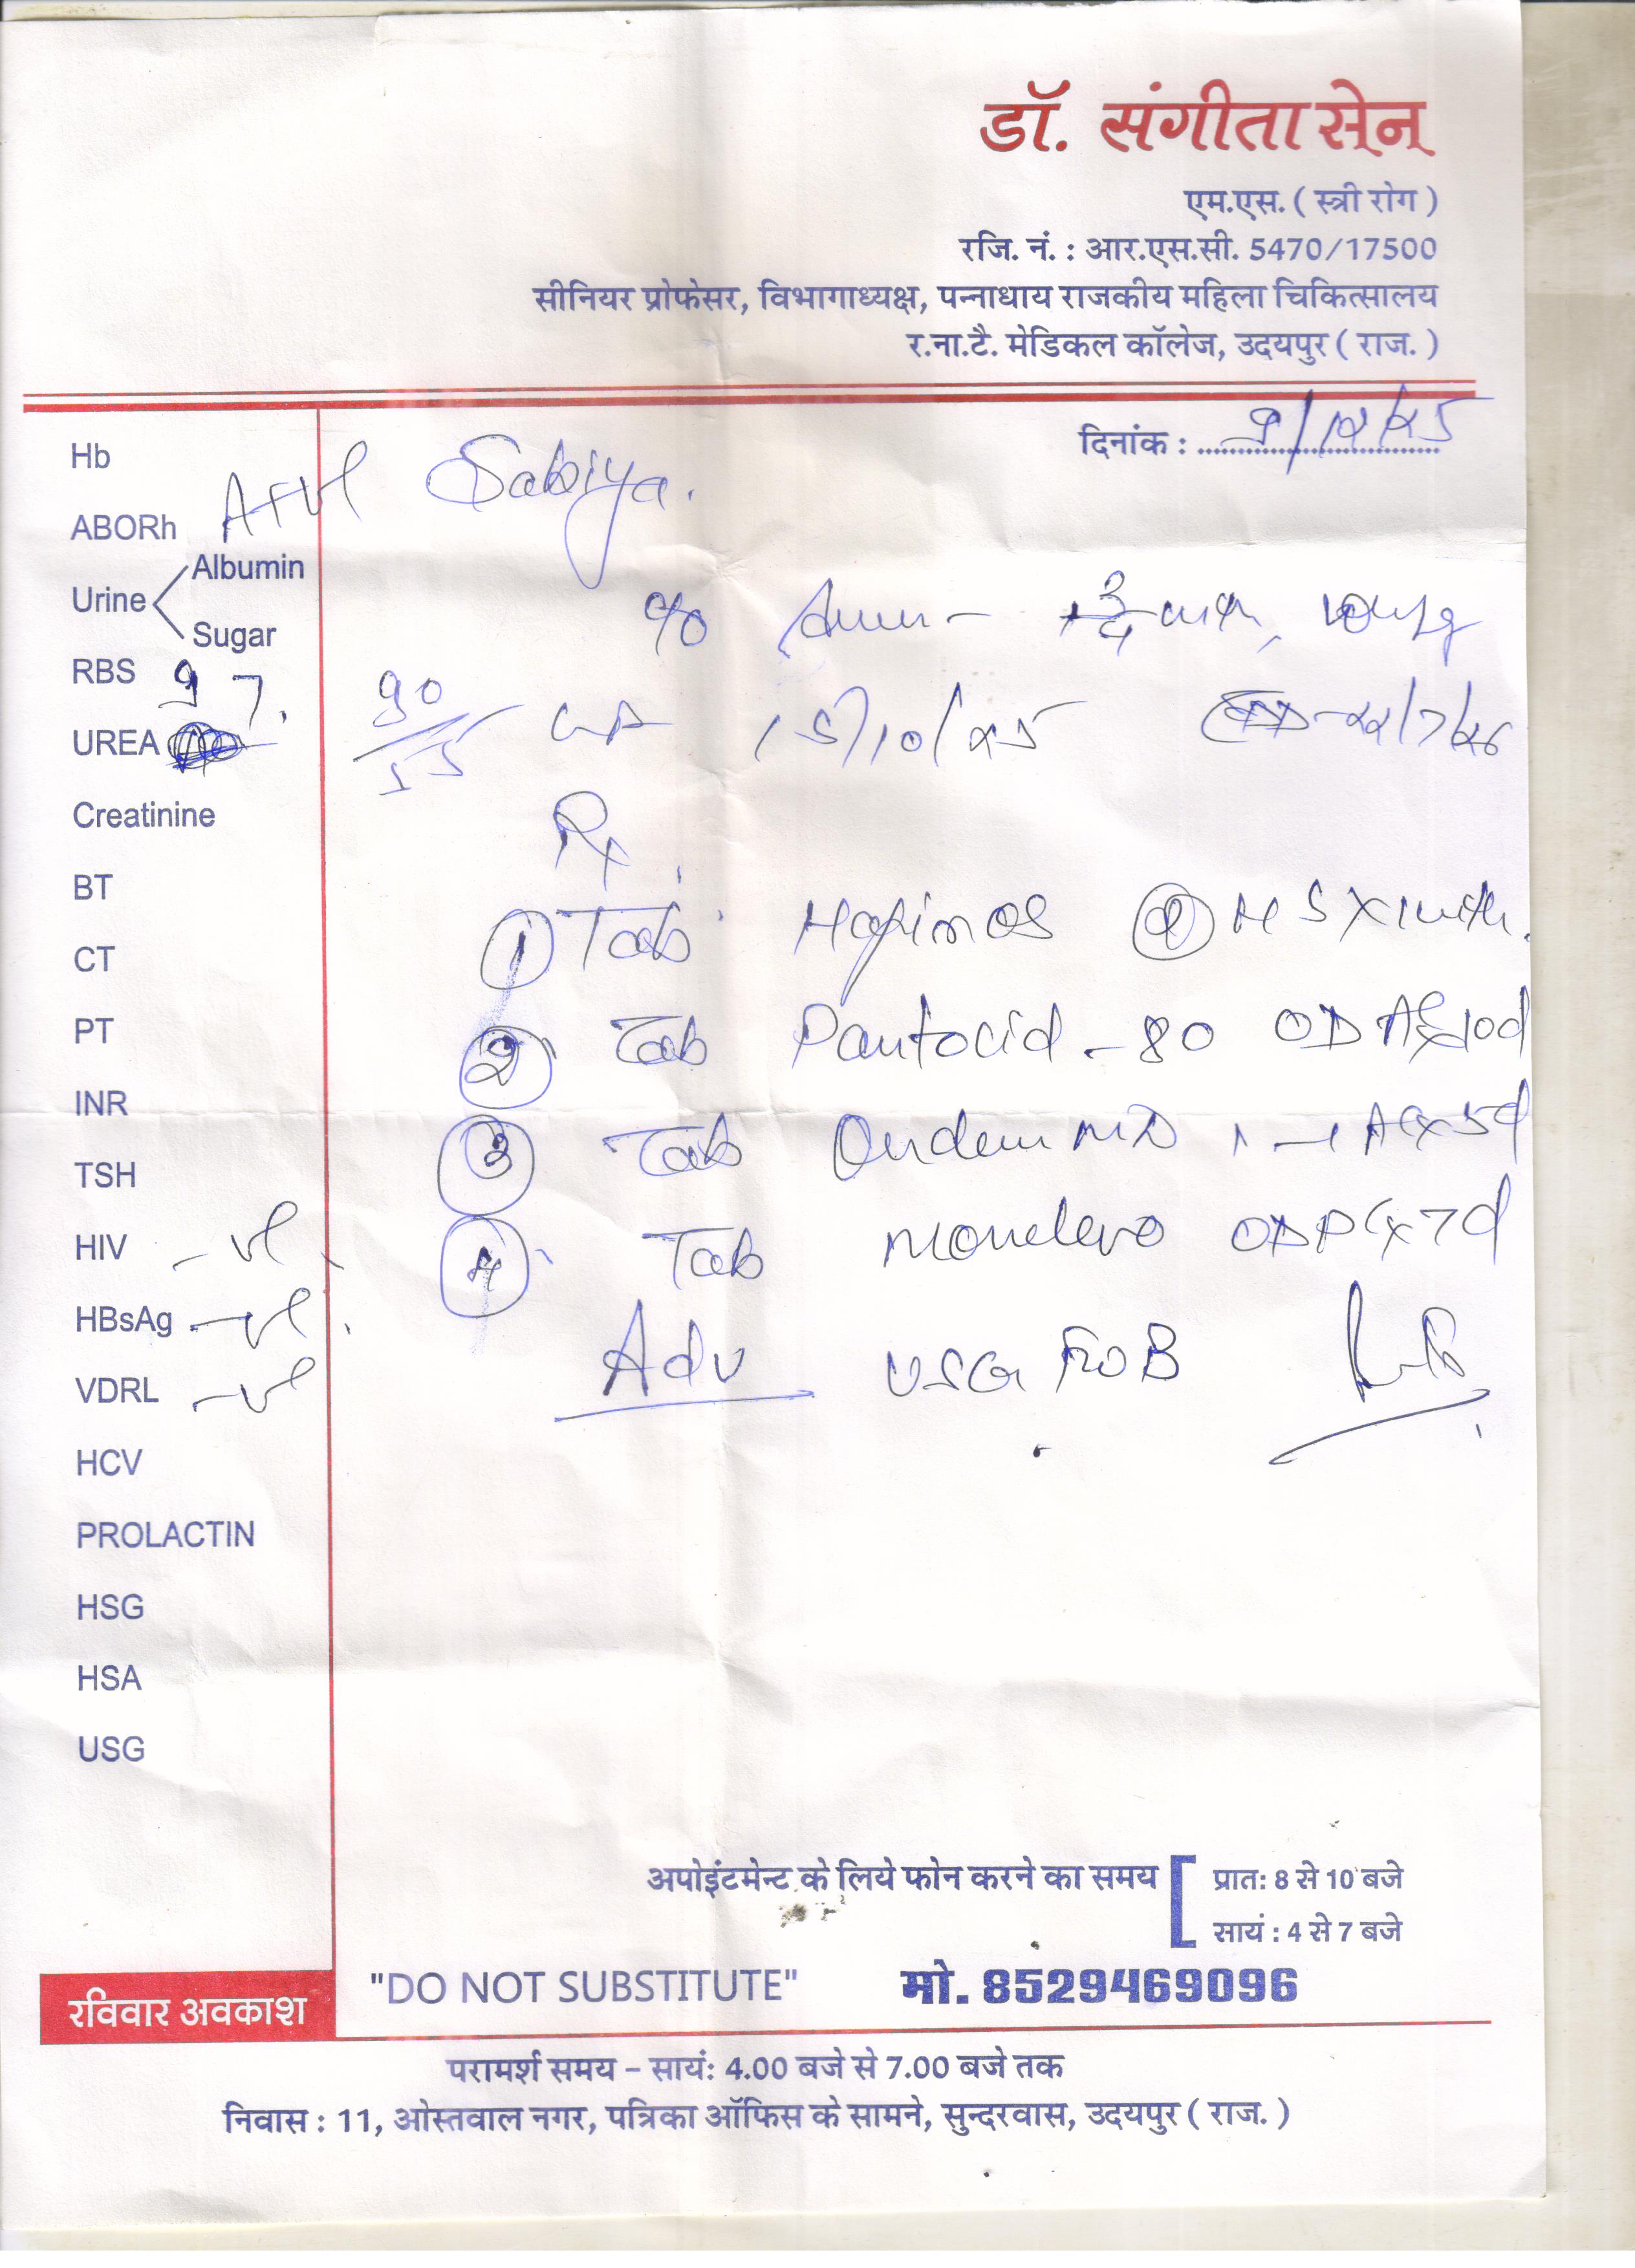 डॉ. संगीता सेन
एम.एस. ( स्त्री रोग )
रजि. नं. : आर.एस.सी. 5470/17500
सीनियर प्रोफेसर, विभागाध्यक्ष, पन्नाधाय राजकीय महिला चिकित्सालय
र.ना.टै. मेडिकल कॉलेज, उदयपुर ( राज. )
दिनांक : 9/12/25
Hb
Sabiya.
ABORh A+ve
Urine Albumin
Sugar
RBS 97.
UREA
90/55 15/10/25 22/7/26
Creatinine
Rx
BT
① Tab HS
CT
PT
② Tab Pantocid - 80 OD
INR
③ Tab MD
TSH
HIV -ve
④ Tab OD
HBsAg -ve
VDRL -ve
Adv USG
HCV
PROLACTIN
HSG
HSA
USG
अपोइंटमेन्ट के लिये फोन करने का समय [ प्रात: 8 से 10 बजे
सायं : 4 से 7 बजे
रविवार अवकाश
"DO NOT SUBSTITUTE" मो. 8529469096
परामर्श समय – सायं: 4.00 बजे से 7.00 बजे तक
निवास : 11, ओस्तवाल नगर, पत्रिका ऑफिस के सामने, सुन्दरवास, उदयपुर ( राज. )